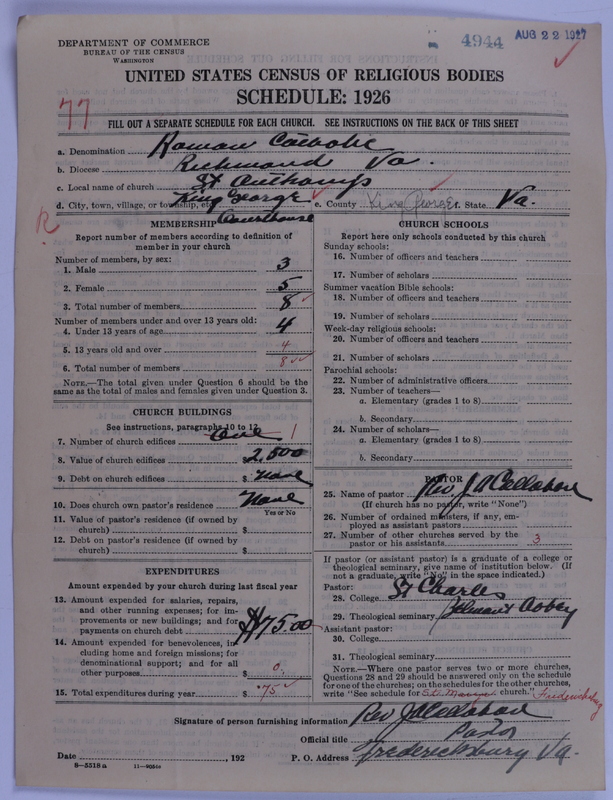 4944 AUG 22 1927
DEPARTMENT OF COMMERCE
BUREAU OF THE CENSUS
WASHINGTON
UNITED STATES CENSUS OF RELIGIOUS BODIES
SCHEDULE: 1926
77
FILL OUT A SEPARATE SCHEDULE FOR EACH CHURCH. SEE INSTRUCTIONS ON THE BACK OF THIS SHEET
a. Denomination Roman Catholic
b. Diocese Richmond Va.
c. Local name of church St
d. City, town, village, or township, etc. King George Courthouse e. County King George f. State Va.
R
MEMBERSHIP
Report number of members according to definition of
member in your church
Number of members, by sex:
1. Male 3
2. Female 5
3. Total number of members 8
Number of members under and over 13 years old:
4. Under 13 years of age 4
5. 13 years old and over 4
6. Total number of members 8
NOTE.—The total given under Question 6 should be the
same as the total of males and females given under Question 3.
CHURCH BUILDINGS
See instructions, paragraphs 10 to 12
7. Number of church edifices One 1
8. Value of church edifices $ 2,500
9. Debt on church edifices $ None
10. Does church own pastor's residence None
Yes or No
11. Value of pastor's residence (if owned by
church) $
12. Debt on pastor's residence (if owned by
church) $
EXPENDITURES
Amount expended by your church during last fiscal year
13. Amount expended for salaries, repairs,
and other running expenses; for im-
provements or new buildings; and for
payments on church debt $75.00
14. Amount expended for benevolences, in-
cluding home and foreign missions; for
denominational support; and for all
other purposes $ 0.
15. Total expenditures during year $ 75
CHURCH SCHOOLS
Report here only schools conducted by this church
Sunday schools:
16. Number of officers and teachers
17. Number of scholars
Summer vacation Bible schools:
18. Number of officers and teachers
19. Number of scholars
Week-day religious schools:
20. Number of officers and teachers
21. Number of scholars
Parochial schools:
22. Number of administrative officers
23. Number of teachers—
a. Elementary (grades 1 to 8)
b. Secondary
24. Number of scholars—
a. Elementary (grades 1 to 8)
b. Secondary
PASTOR
25. Name of pastor Rev J A Cellahan
(If church has no pastor, write "None")
26. Number of ordained ministers, if any, em-
ployed as assistant pastors
27. Number of other churches served by the
pastor or his assistants 3
If pastor (or assistant pastor) is a graduate of a college or
theological seminary, give name of institution below. (If
not a graduate, write "No" in the space indicated.)
Pastor:
28. College St Charles
29. Theological seminary Belmont Abbey
Assistant pastor:
30. College
31. Theological seminary
NOTE.—Where one pastor serves two or more churches,
Questions 28 and 29 should be answered only on the schedule
for one of the churches; on the schedules for the other churches,
write "See schedule for St. Marys church." Fredericksburg
Signature of person furnishing information Rev J A Cellahan
Official title Pastor
Date , 192 P. O. Address Fredericksburg Va.
8-5518a 11-90566